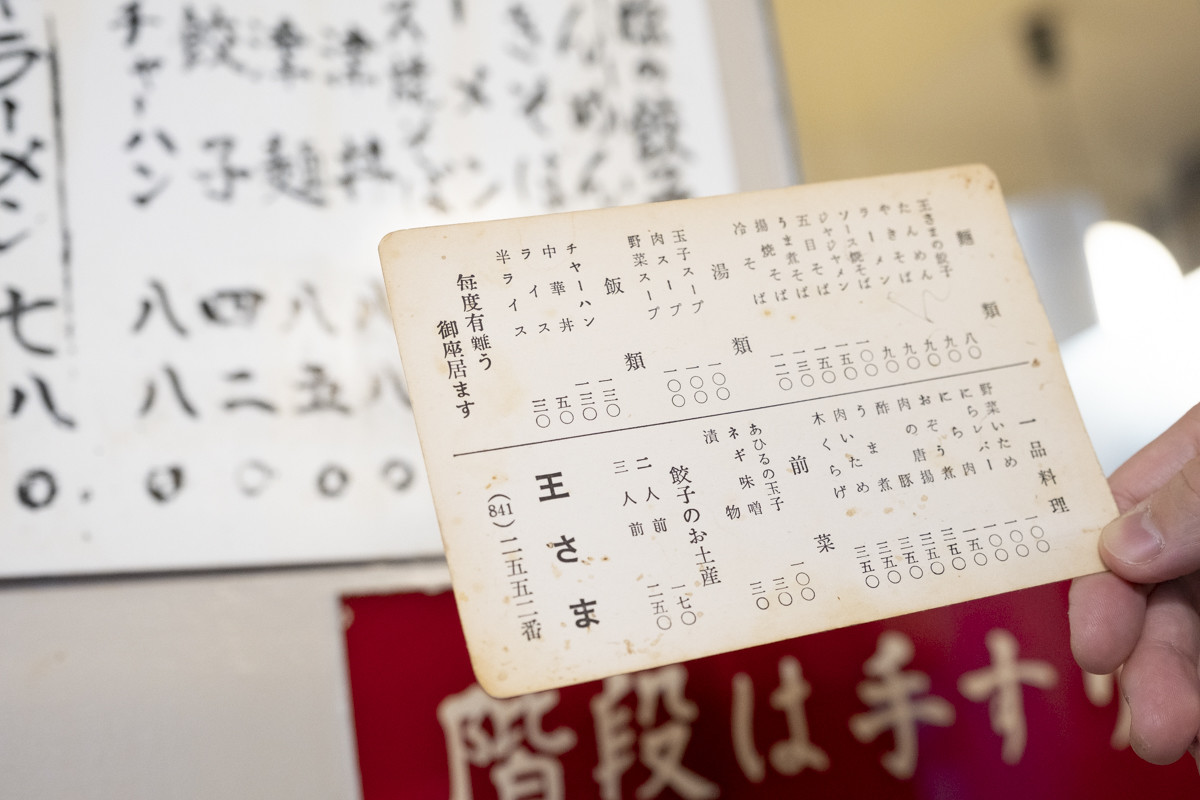 麺類
王さまの餃子 八〇
たんめん 九〇
やきそば 九〇
ラーメン 九〇
ソース焼そば 九〇
ジャジャメン
五目そば 一五〇
うま煮そば 一五〇
揚焼そば 一三〇
冷そば 一二〇
湯類
玉子スープ 一〇〇
肉スープ 一〇〇
野菜スープ 一〇〇
飯類
チャーハン 一三〇
中華丼 一三〇
ライス 五〇
半ライス 三〇
毎度有難う
御座居ます
一品料理
野菜いため 一〇〇
にらレバー 一〇〇
肉の唐揚
酢豚
うま煮
肉いため
木くらげ
前菜
あひるの玉子 一〇〇
ネギ味噌 三〇
漬物 三〇
餃子のお土産
二人前 一七〇
三人前 二五〇
王さま
(841)二五五二番
餃子 四二〇
チャーハン 八八〇
ラーメン 七八〇
階段は手す